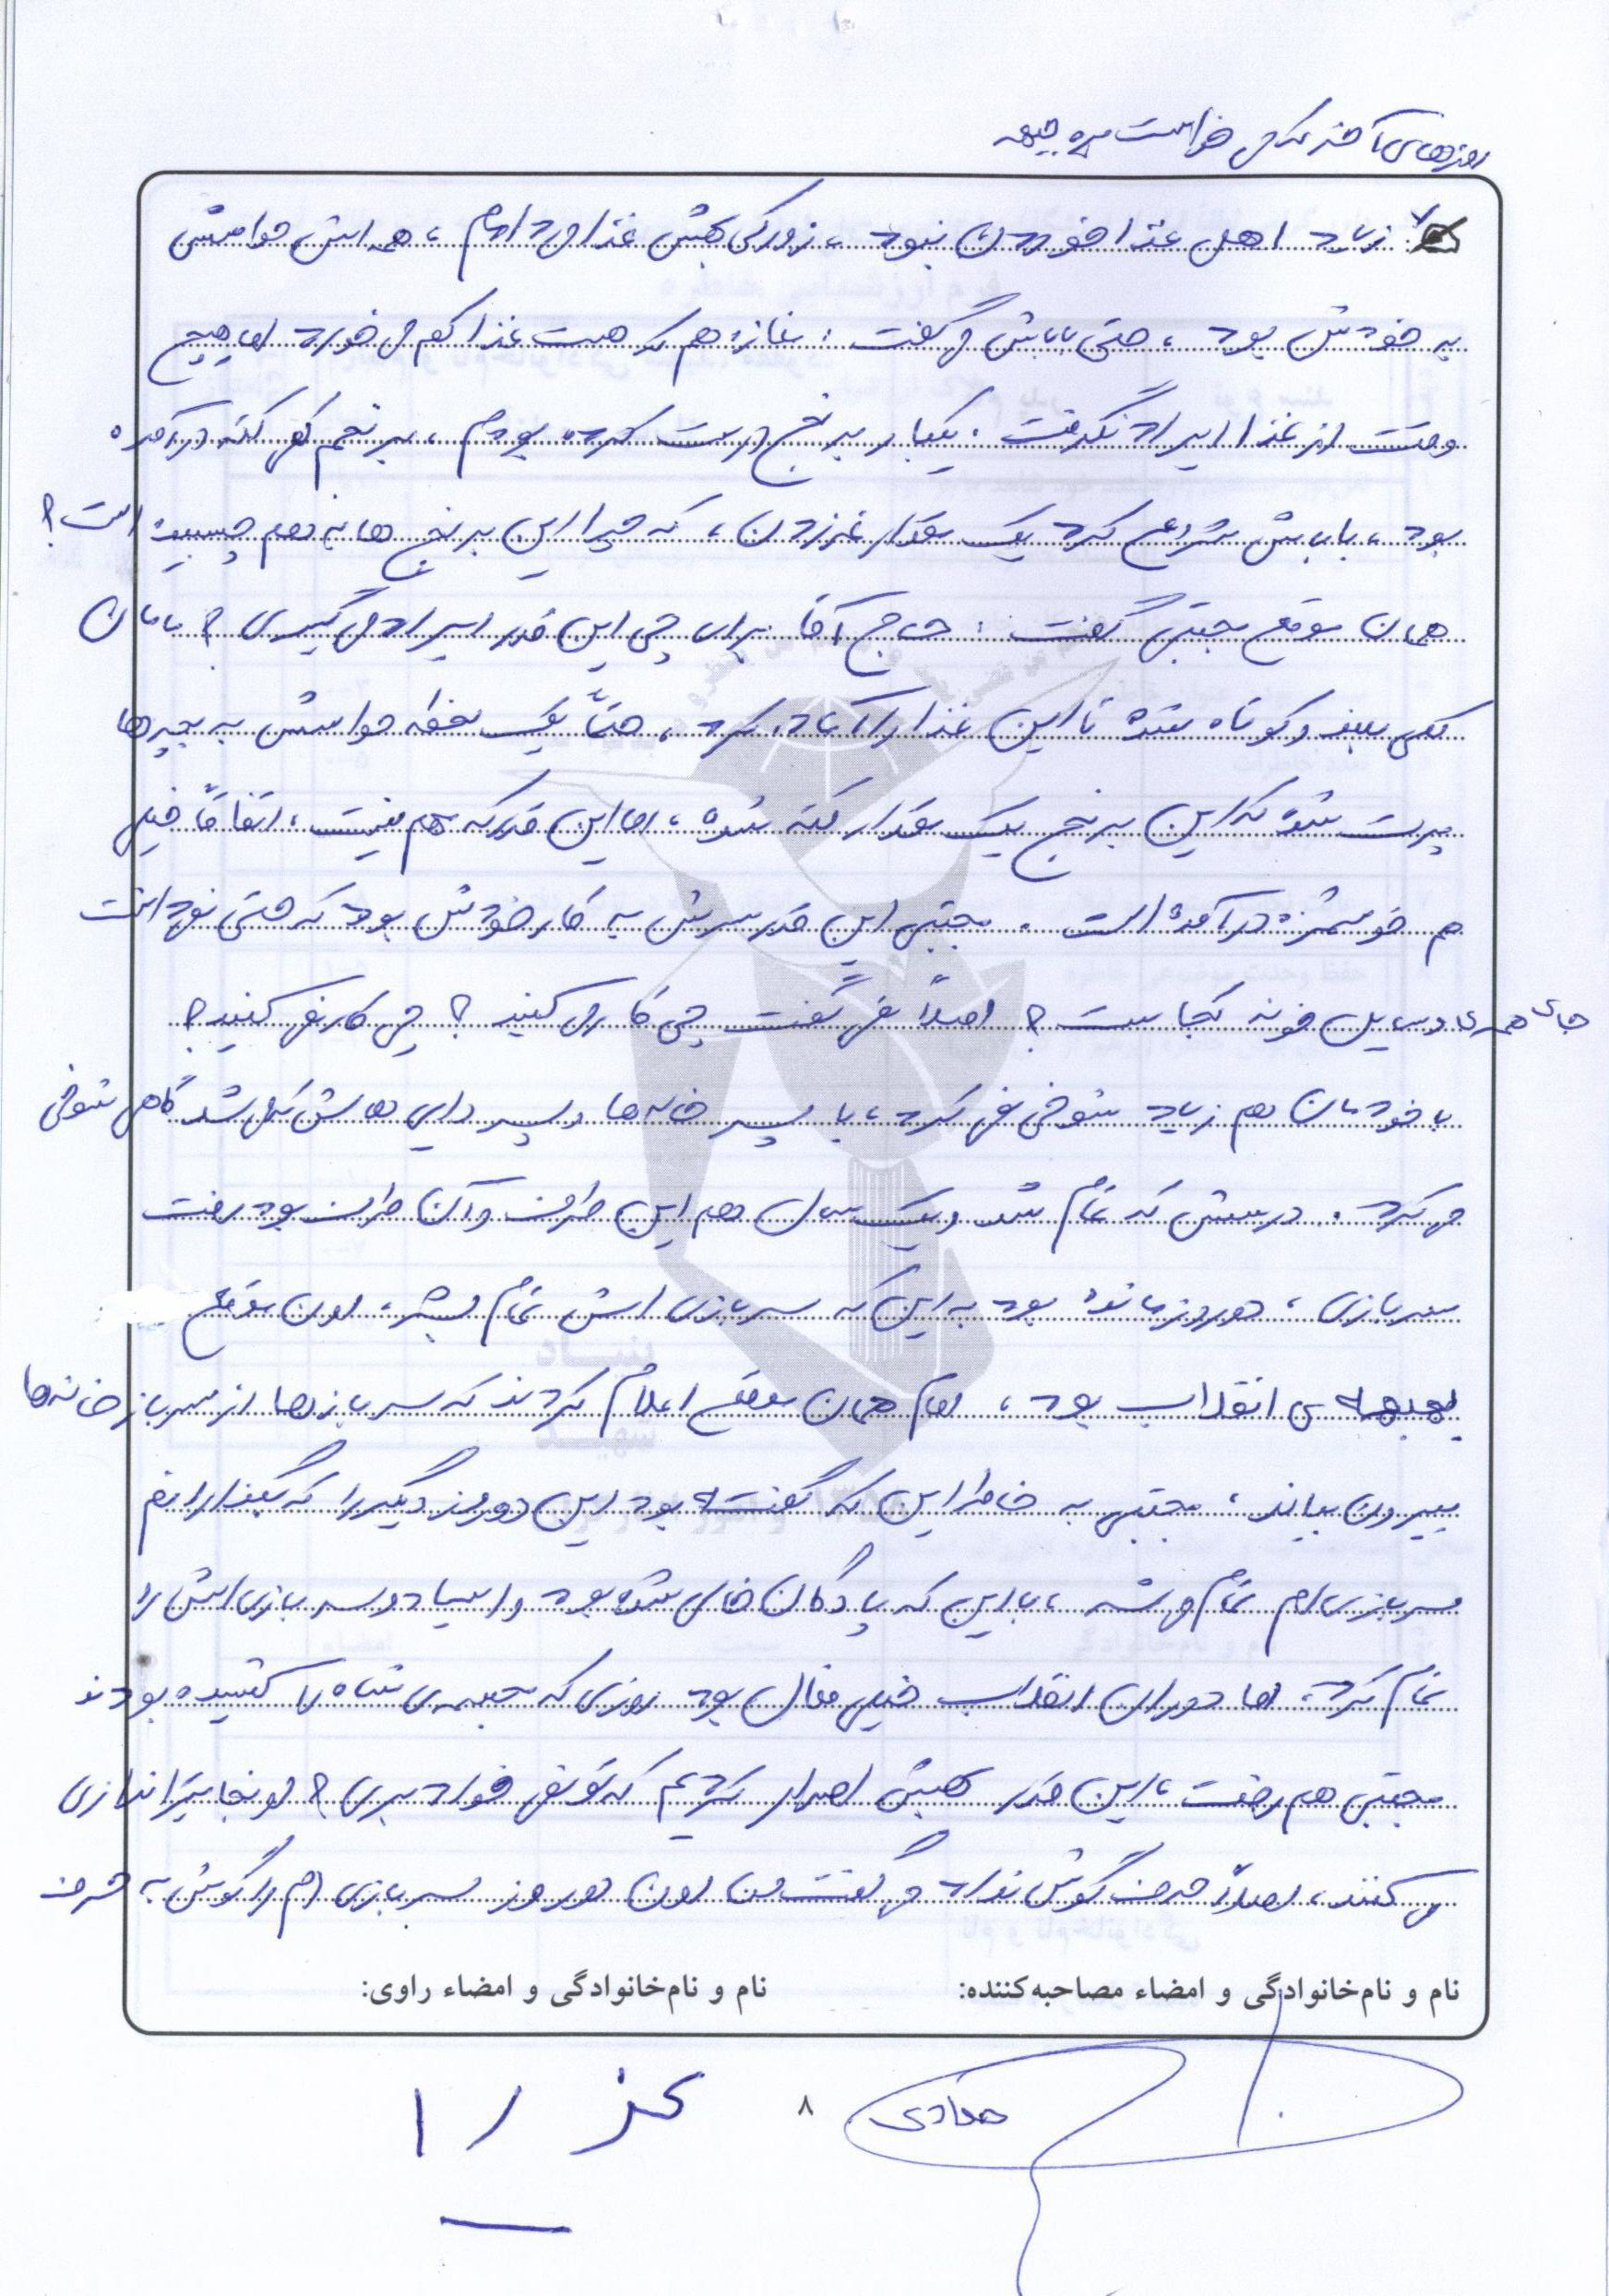 روزهای آخر که می خواست بره جبهه
زیاد اهل غذا خوردن نبود، زورکی بهش غذا می دادم، همه اش حواسش
به خودش بود، حتی باباش می گفت: مغازه هم که هست غذا کم می خورد اما هیچ
وقت از غذا ایراد نگرفت. یکبار برنج درست کرده بودم، برنجم کمی کته درآمده
بود، باباش شروع کرد یک مقدار غر زدن، که چرا این برنج ها به هم چسبیده است؟
همان موقع مجتبی گفت: حاج آقا برای چی این قدر ایراد می گیری؟ مامان
کلی بلند و کوتاه شده تا این غذا را آماده کرد، حتماً یک لحظه حواسش به بچه ها
پرت شده که این برنج یک مقدار کته شده، اما این قدر که بهم نیست، اتفاقاً خیلی
هم خوشمزه درآمده است. مجتبی این قدر سرش به کار خودش بود که حتی نمی دانست
جای همه ی وسایل خونه کجاست؟ اصلاً نمی گفت چی کار می کنید؟ چی کار نمی کنید؟
با خودمان هم زیاد شوخی نمی کرد، با پسر خاله ها و پسر دایی هاش که می شد گاهی شوخی
می کرد. درسش که تمام شد و یک سال هم این طرف و آن طرف بود رفت
سربازی، دو روز مانده بود به این که سربازی اش تمام بشه، اون موقع
بحبوحه ی انقلاب بود، امام همان موقع اعلام کردند که سربازها از سربازخانه ها
بیرون بیایند، مجتبی به خاطر این که گفته بود این دو روز دیگر را که بگذرانم
سربازی ام تمام می شه، با این که پادگان خالی شده بود وایساد و سربازی اش را
تمام کرد، اما دوران انقلاب خیلی فعال بود روزی که مجسمه ی شاه را کشیده بودند
مجتبی هم رفت، این قدر بهش اصرار کردیم که تو نمی خواد بری؟ اونجا تیراندازی
می کنند، اصلاً حرف گوش نداد می گفت من اون دو روز سربازی ام را گوش به حرف
نام و نام‌خانوادگی و امضاء مصاحبه‌کننده: نام و نام‌خانوادگی و امضاء راوی:
۸